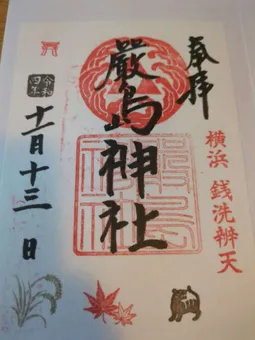 奉拝
横浜 銭洗辨天
厳島神社
令和四年
十一月十三日